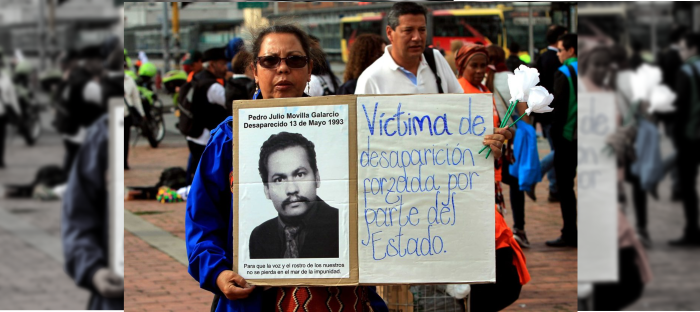 Pedro Julio Movilla Galarcio
Desaparecido 13 de Mayo 1993
Para que la voz y el rostro de los nuestros
no se pierda en el mar de la impunidad.
Víctima de
desaparición
forzada por
parte del
Estado.